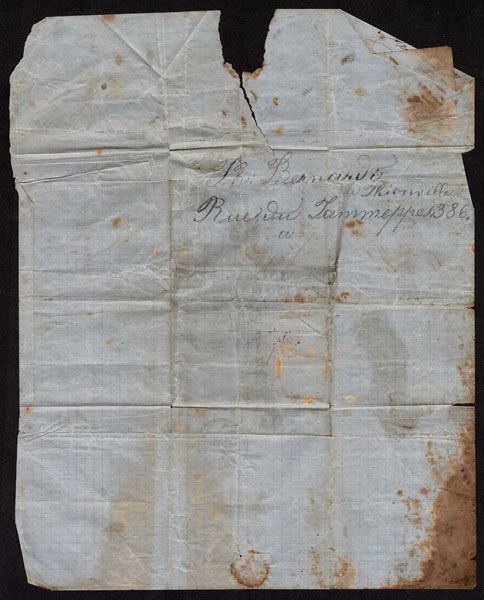 Bernardi
a Thionville
Rue du Jammeppe 386.
a